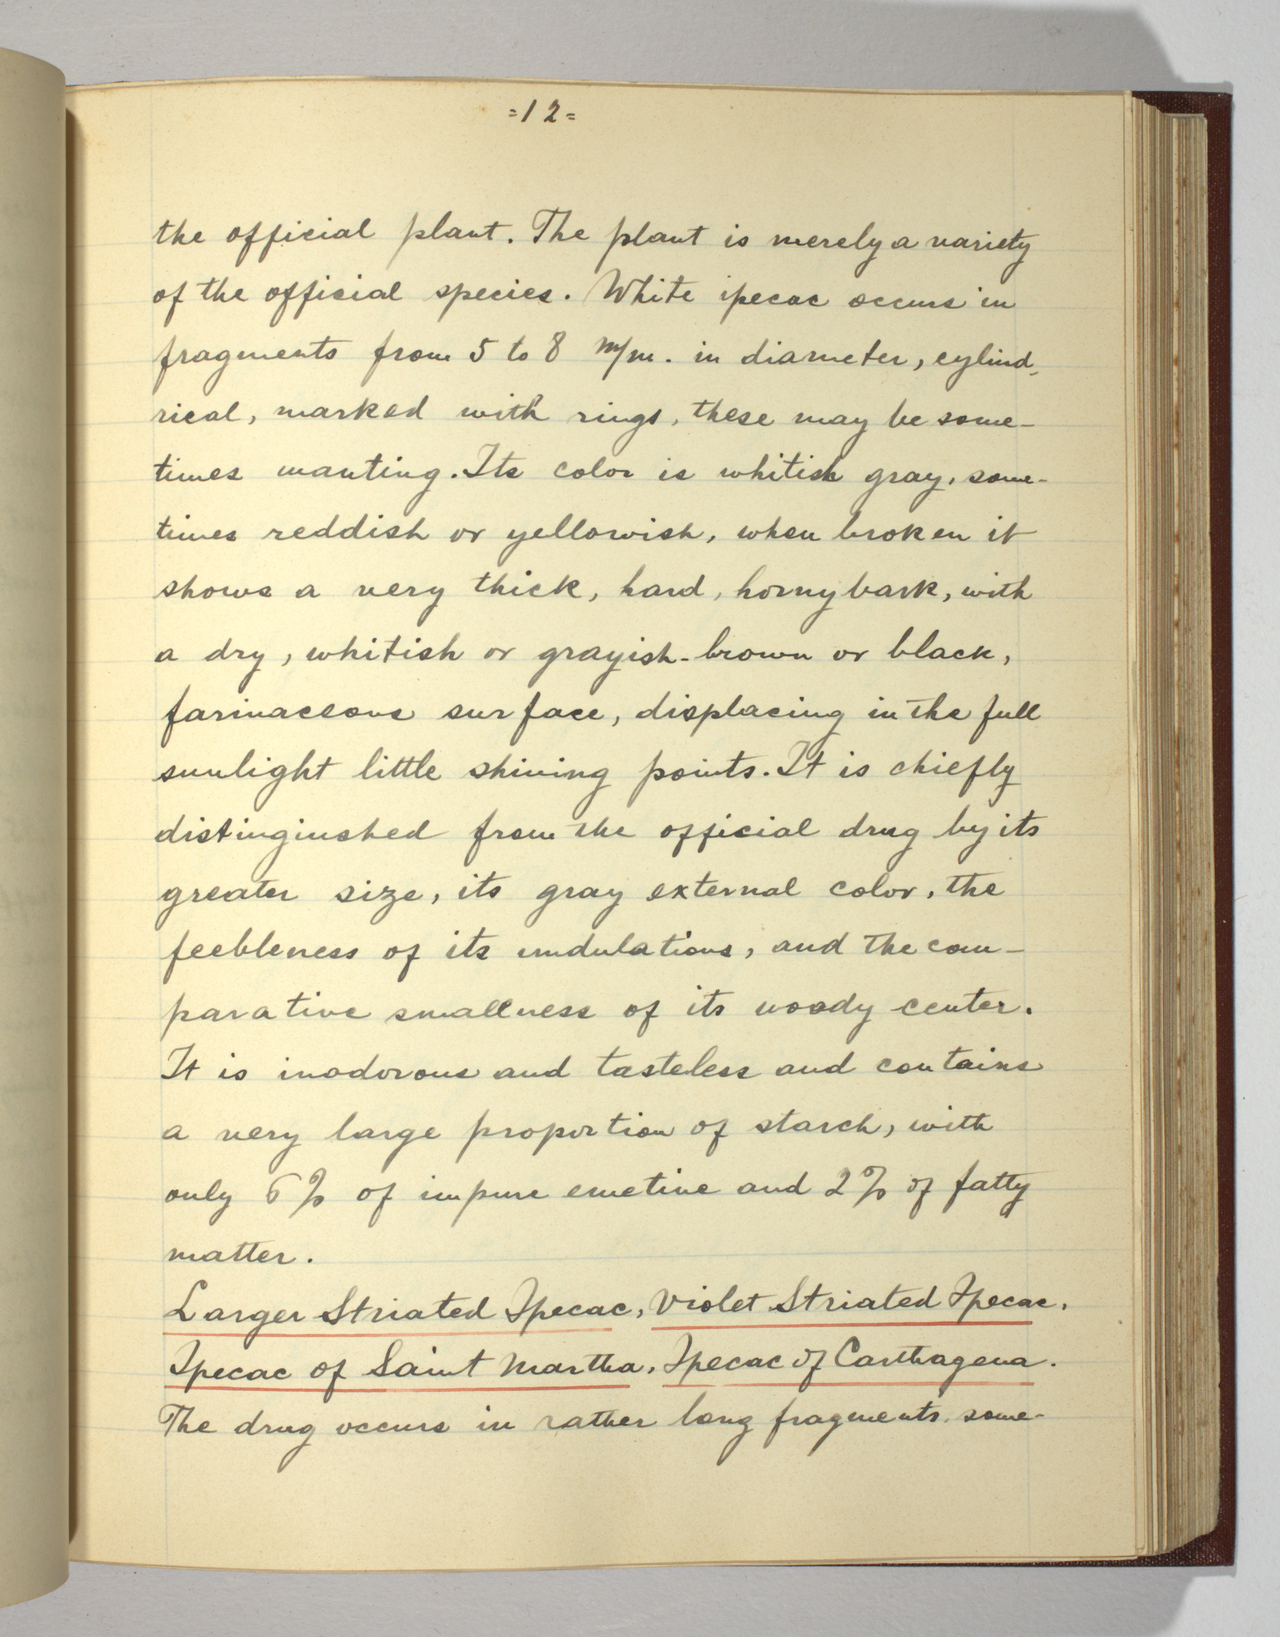 =12=
the official plant. The plant is merely a variety
of the official species. White ipecac occurs in
fragments from 5 to 8 m/m. in diameter, cylind-
rical, marked with rings, these may be some-
times wanting. Its color is whitish gray, some-
times reddish or yellowish, when broken it
shows a very thick, hard, horny bark, with
a dry, whitish or grayish-brown or black,
farinaceous surface, displacing in the full
sunlight little shining points. It is chiefly
distinginshed from the official drug by its
greater size, its gray external color, the
feebleness of its undulations, and the com-
parative smallness of its woody center.
It is inodorous and tasteless and contains
a very large proportion of starch, with
only 6% of impure emetine and 2% of fatty
matter.
Larger Striated Ipecac, Violet Striated Ipecac,
Ipecac of Saint Martha, Ipecac of Carthagena.
The drug occurs in rather long fragments, some-